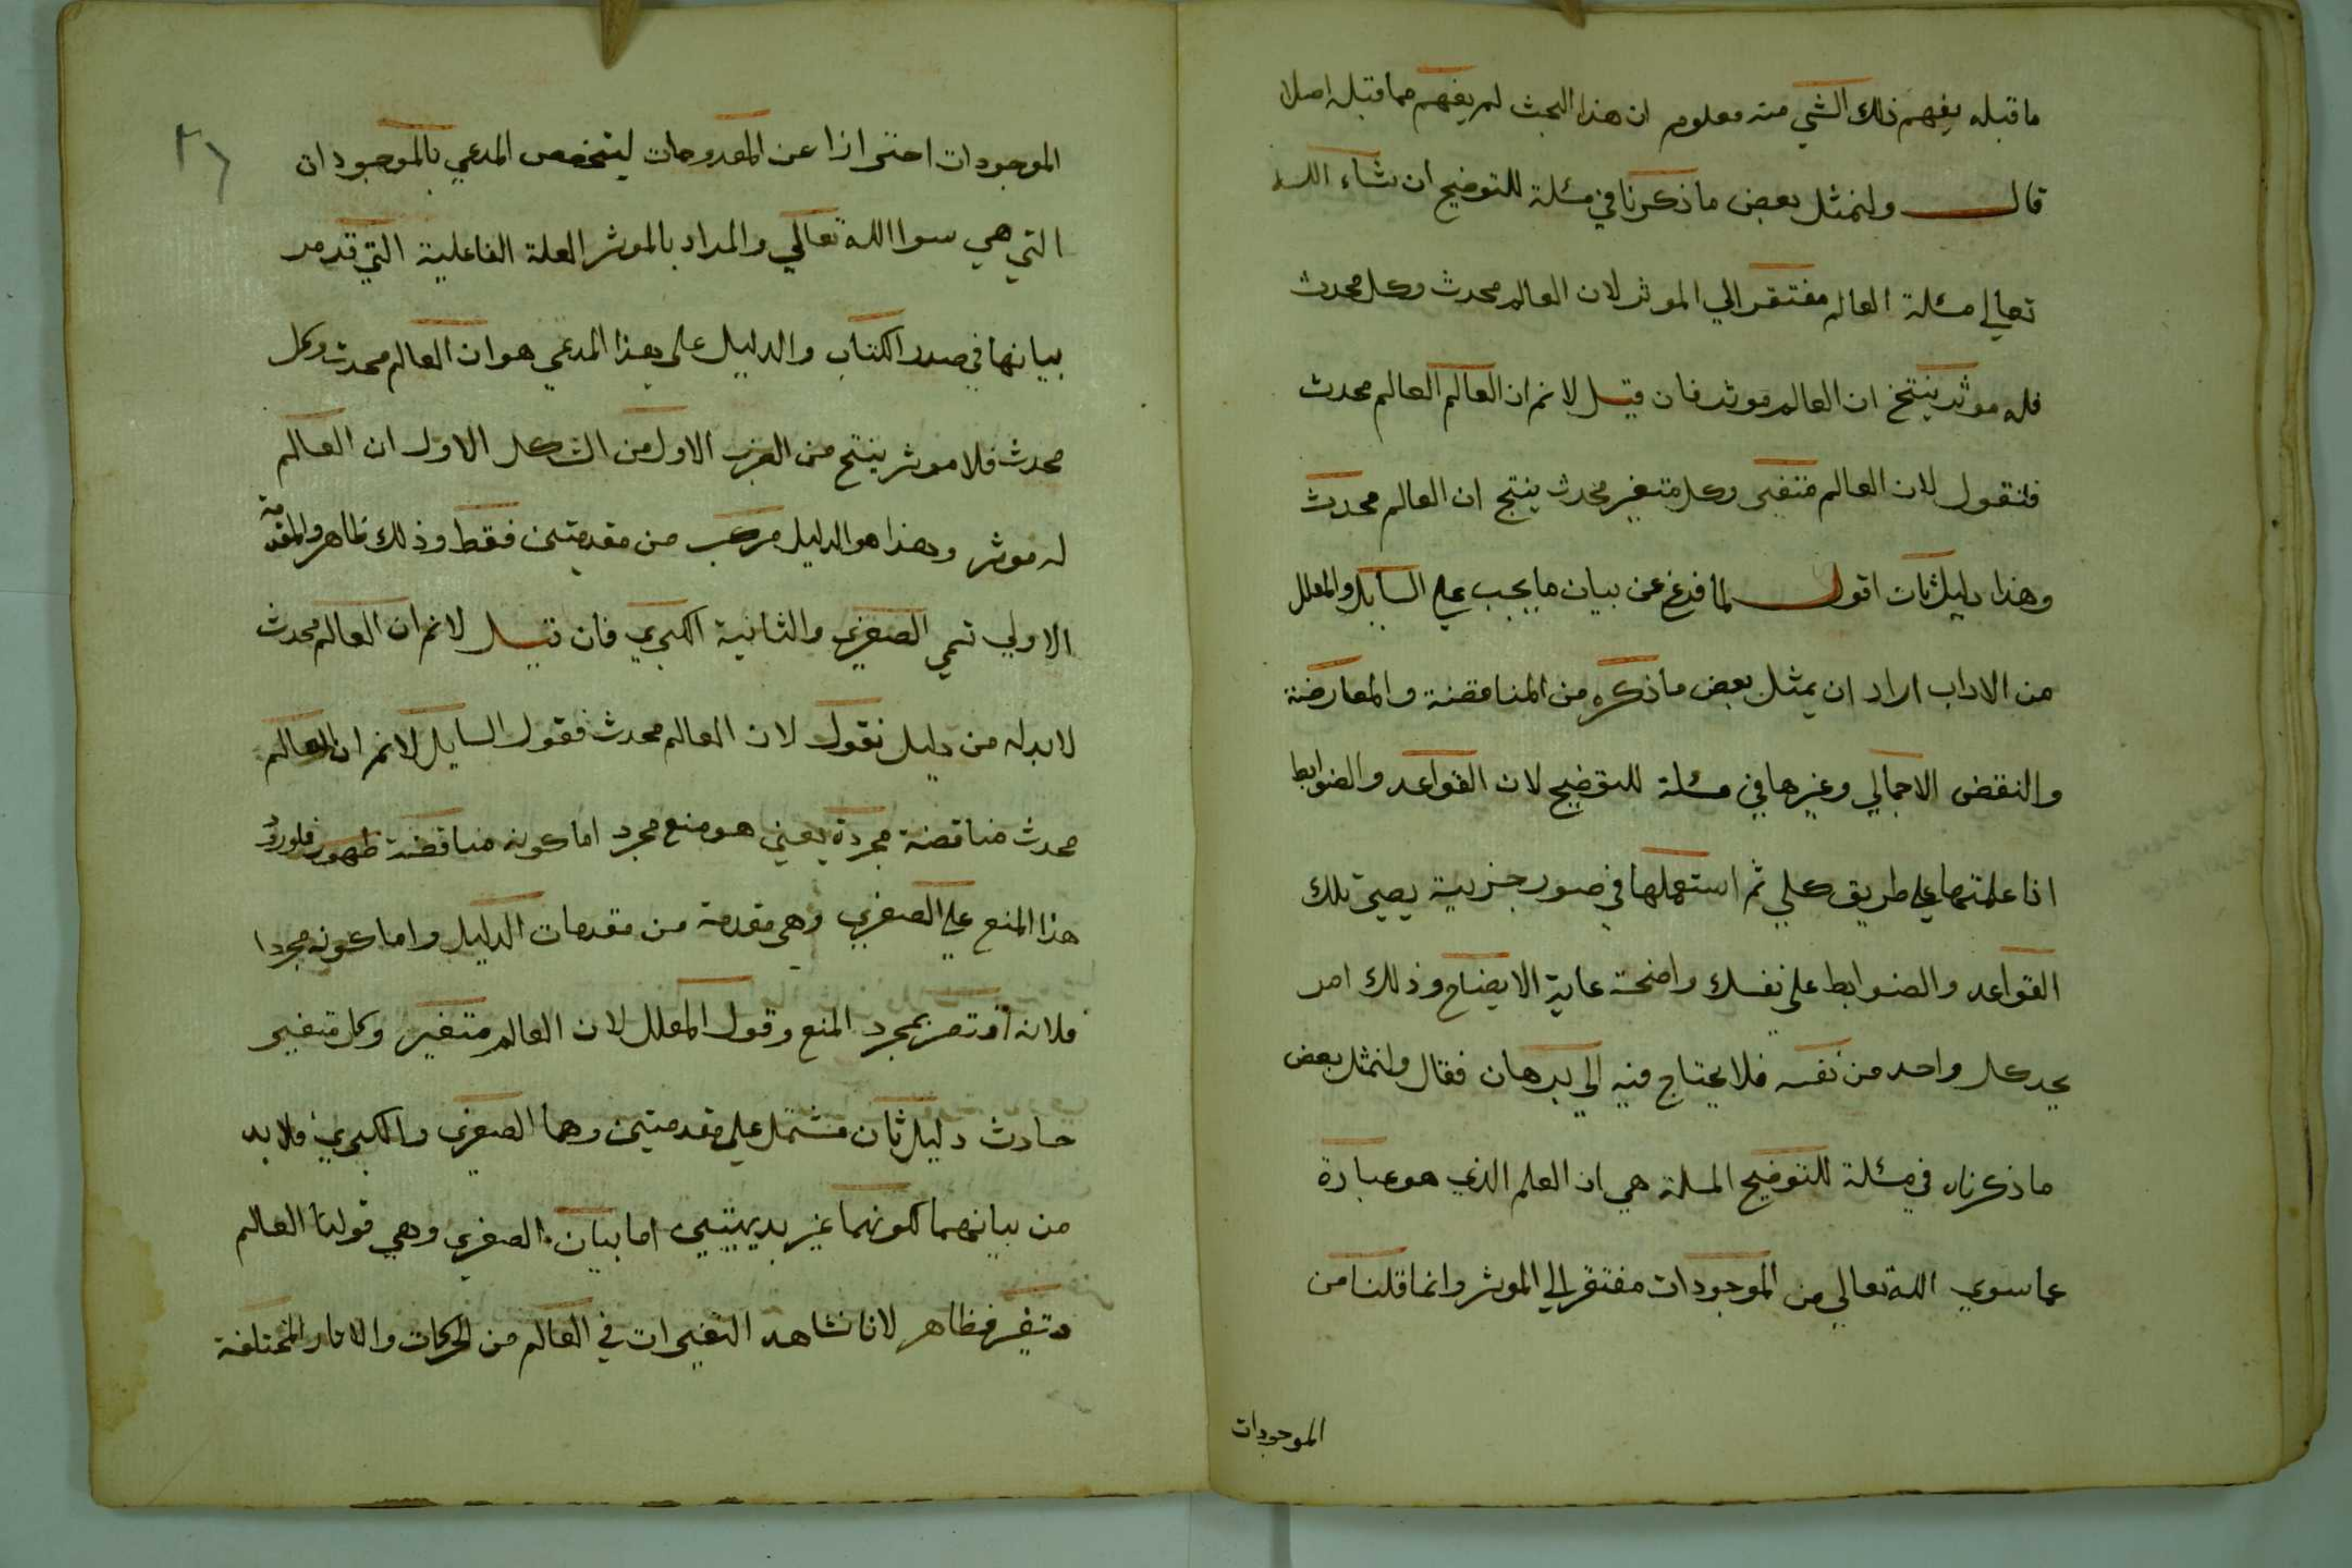 ما قبله يفهم ذلك الشي منه معلوم ان هذا البحث لم يفهم مما قبله اصلا
قال ولنمثل بعض ما ذكرنا في مسئلة للتوضيح ان شاء الله
تعالي مسئلة العالم مفتقر الي الموثر لان العالم محدث وكل محدث
فله موثر ينتج ان العالم موثر فان قيل لا نم ان العالم العالم محدث
فنقول لان العالم متغير وكل متغير محدث ينتج ان العالم محدث
وهذا دليل ثان اقول لما فرغ عن بيان ما يجب علي السايل والمعلل
من الاداب اراد ان يمثل بعض ما ذكره من المناقضة والمعارضة
والنقض الاجمالي وغيرها في مسئلة للتوضيح لان القواعد والضوابط
اذا علمتها علي طريق كلي ثم استعملها في صور جزيية يصير تلك
القواعد والضوابط علي نفسك واضحة غاية الايضاح وذلك امر
يجد كل واحد من نفسه فلا يحتاج فيه الي برهان فقال ولنمثل بعض
ما ذكرناه في مسئلة للتوضيح المسلة هي ان العلم الذي هو عبارة
عما سوي الله تعالي من الموجودات مفتقر الي الموثر وانما قلنا من
الموجودات
الموجودات احترازا عن المعدومات ليتخصص المدعي بالموجودات
التي هي سوا الله تعالي والمراد بالموثر العلة الفاعلية التي قد مر
بيانها في صدر الكتاب والدليل علي هذا المدعي هو ان العالم محدث وكل
محدث فلا موثر ينتج من الضرب الاول من الشكل الاول ان العالم
له موثر وهذا هو الدليل مركب من مقدمتين فقط وذلك ظاهر والمقدمة
الاولي تسمي الصغري والثانية الكبري فان قيل لا نم ان العالم محدث
لا بد له من دليل نقول لان العالم محدث فقول السايل لا نم ان العالم
محدث مناقضة مجردة يعني هو منع مجرد اما كونه مناقضة فلورود
هذا المنع علي الصغري وهي مقدمة من مقدمات الدليل واما كونه مجردا
فلانه اقتصر بمجرد المنع وقول المعلل لان العالم متغير وكل متغير
حادث دليل ثان مشتمل علي مقدمتين وهما الصغري والكبري فلا بد
من بيانهما لكونهما غير بديهيتين اما بيان الصغري وهي قولنا العالم
متغير فظاهر لانا نشاهد التغيرات في العالم من الحركات والاثار المختلفة